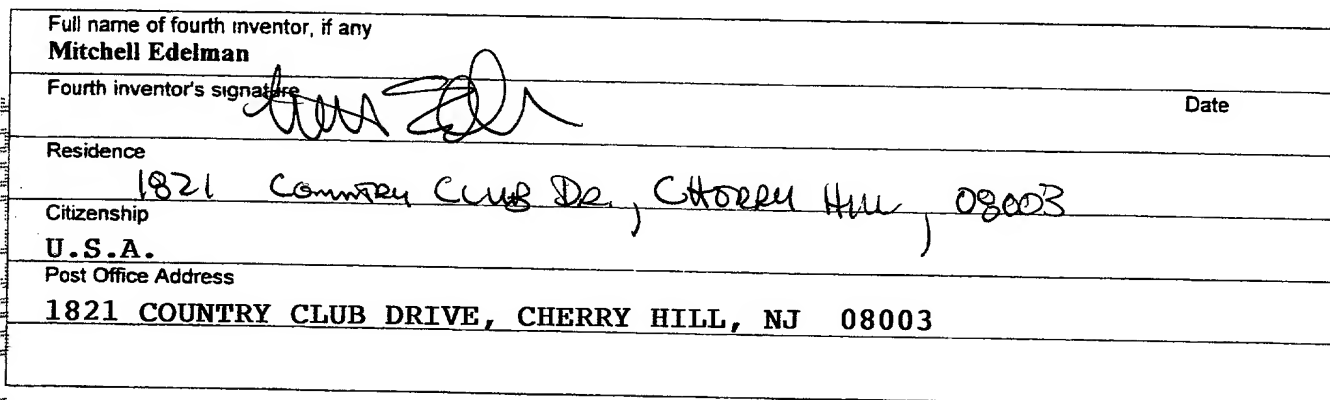 Full name of fourth inventor, if any
Mitchell Edelman
Fourth inventor's signature
Date
Residence
1821 Country Club Dr., Cherry Hill, 08003
Citizenship
U.S.A.
Post Office Address
1821 COUNTRY CLUB DRIVE, CHERRY HILL, NJ 08003